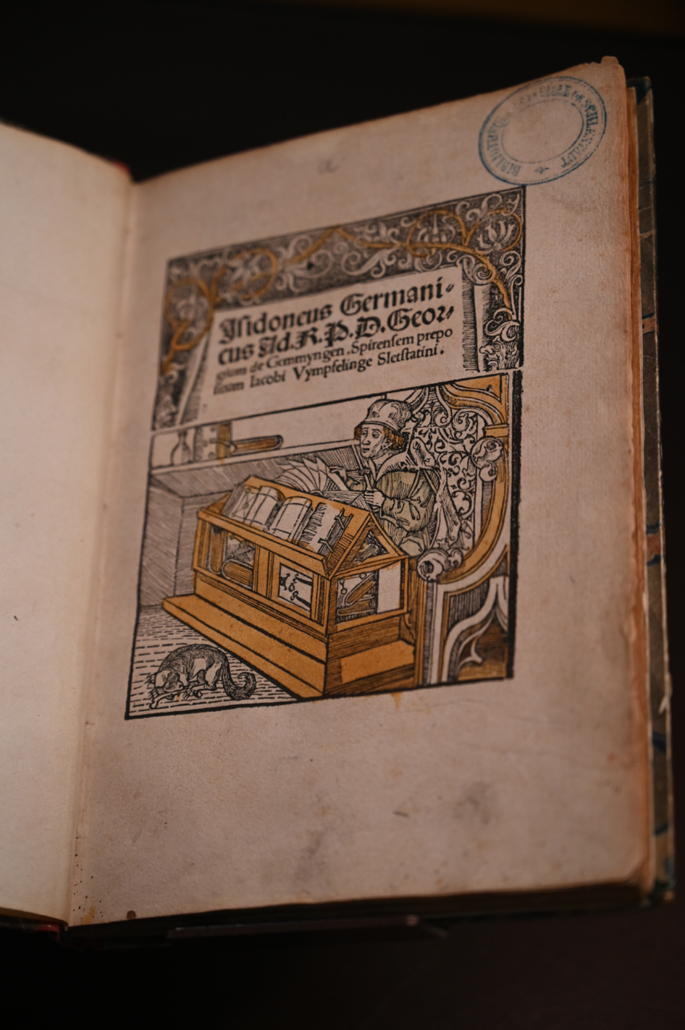 Isidoneus Germani⸗
cus Ad.R.P.D.Geor⸗
gium de Gemmyngen.Spirensem prepo
situm Iacobi Vympfelinge Sletstatini.
SCHLESTADT